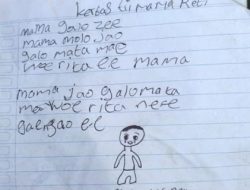 kertas tii mama Reti
mama galo zee
mama molo jao
galo mata mae
wee rita ee mama
mama jao galo mata
mawoe rita nese
gaengao ee